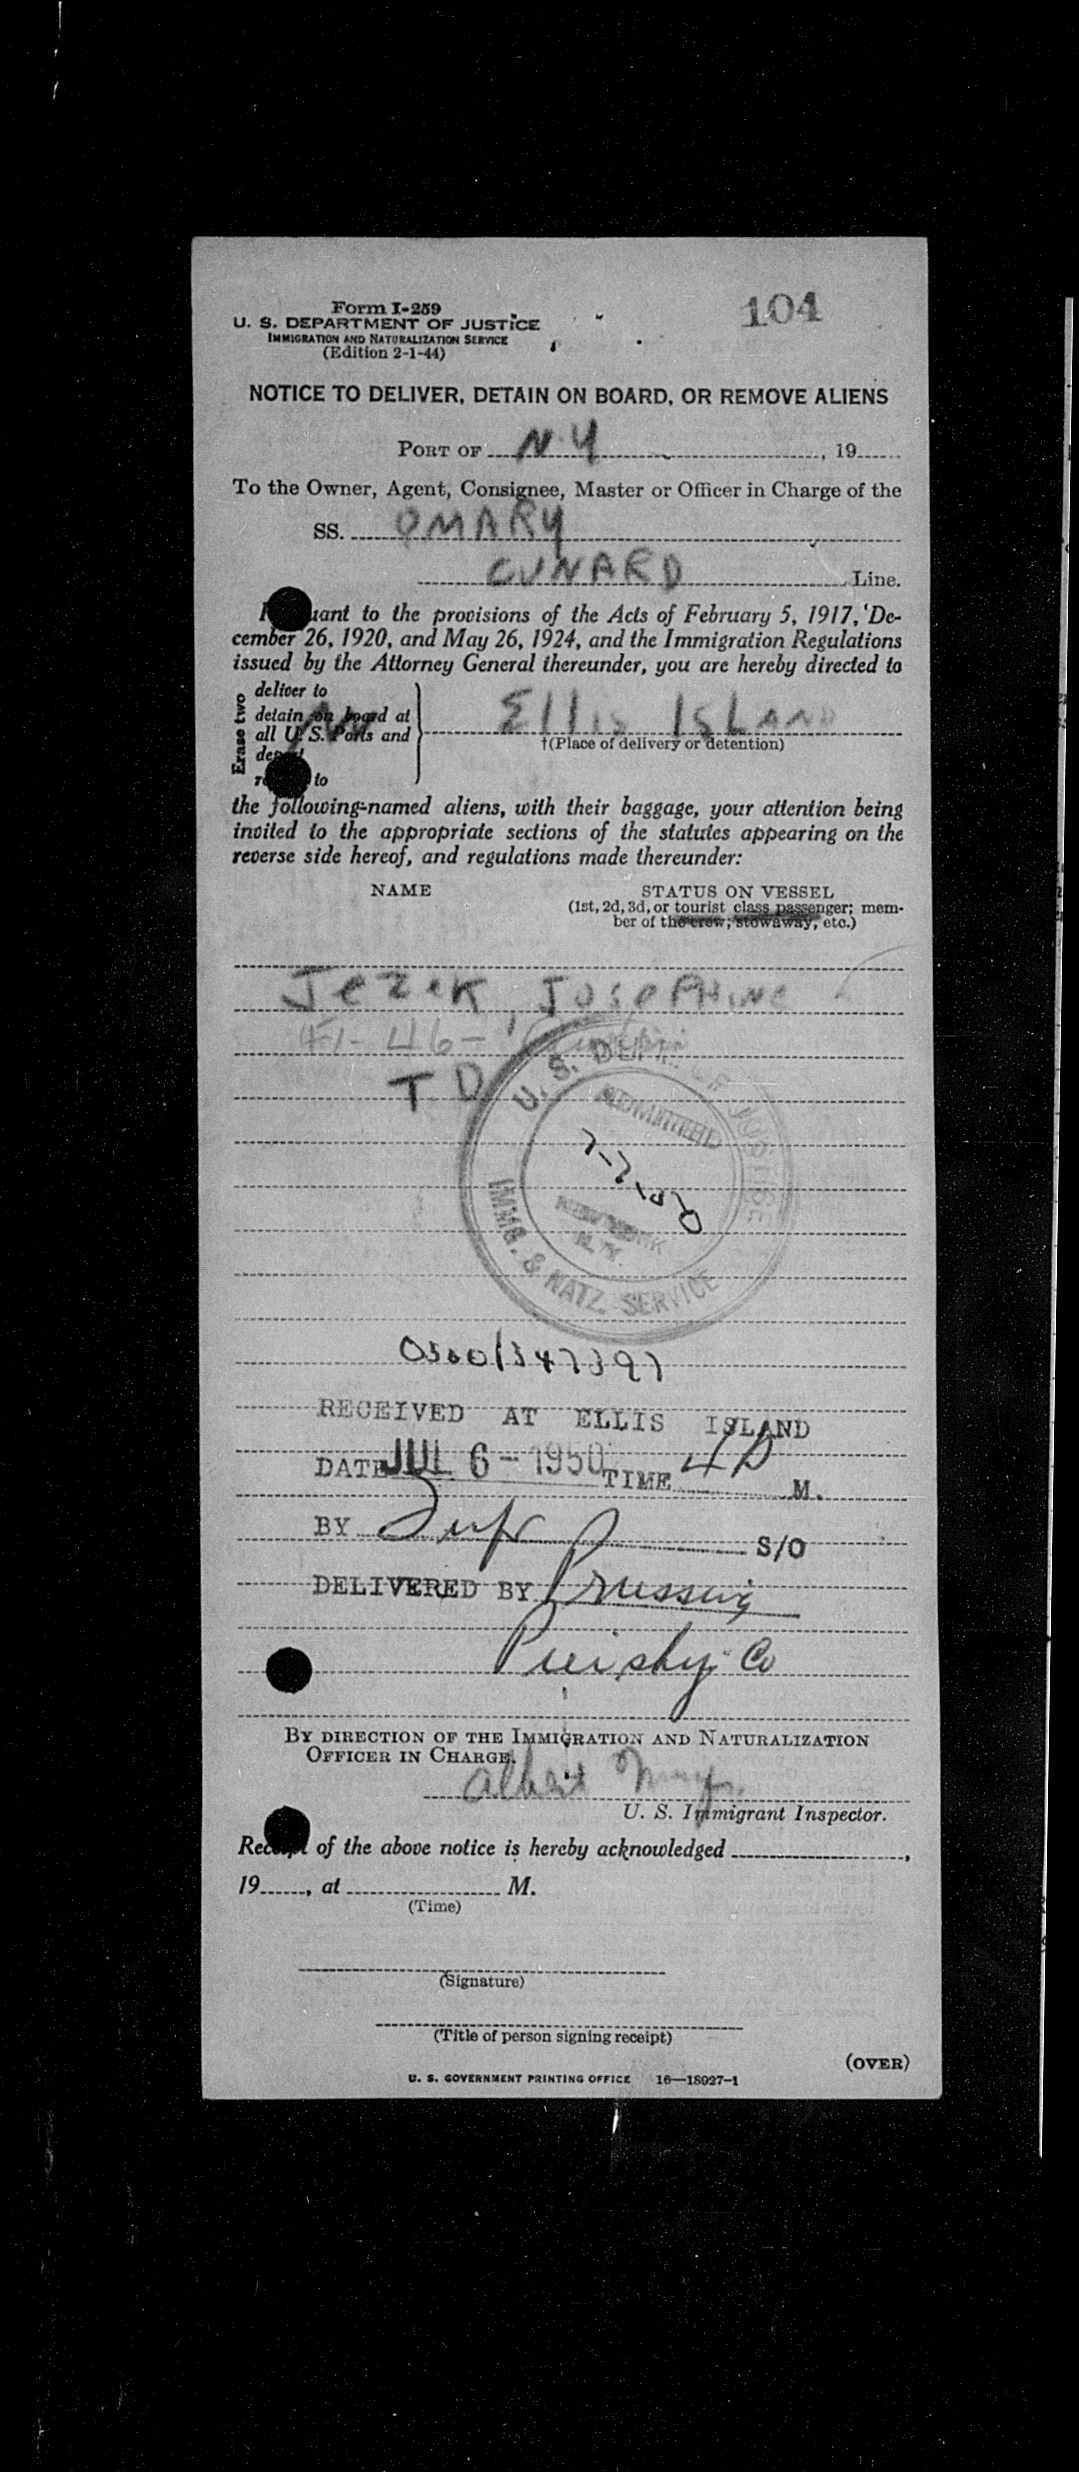 104
Form I-259
U. S. DEPARTMENT OF JUSTICE
IMMIGRATION AND NATURALIZATION SERVICE
(Edition 2-1-44)
NOTICE TO DELIVER, DETAIN ON BOARD, OR REMOVE ALIENS
PORT OF N.Y , 19
To the Owner, Agent, Consignee, Master or Officer in Charge of the
SS. QMARY
CUNARD Line.
uant to the provisions of the Acts of February 5, 1917, De-
cember 26, 1920, and May 26, 1924, and the Immigration Regulations
issued by the Attorney General thereunder, you are hereby directed to
Erase two
deliver to
detain on board at
all U. S. Ports and
to
Ellis ISLAND
†(Place of delivery or detention)
the following-named aliens, with their baggage, your attention being
invited to the appropriate sections of the statutes appearing on the
reverse side hereof, and regulations made thereunder:
NAME
STATUS ON VESSEL
(1st, 2d, 3d, or tourist class passenger; mem-
ber of the crew; stowaway, etc.)
Jezek, Josephine
41-46-
T D
U. S. DEPT. OF JUSTICE
ADMITTED
7-7-50
NEW YORK
N. Y.
IMMG. & NATZ. SERVICE
0300/347397
RECEIVED AT ELLIS ISLAND
DATE JUL 6-1950 TIME 4P M.
BY S/O
DELIVERED BY
Co
BY DIRECTION OF THE IMMIGRATION AND NATURALIZATION
OFFICER IN CHARGE.
Albert
U. S. Immigrant Inspector.
Receipt of the above notice is hereby acknowledged ,
19 , at M.
(Time)
(Signature)
(Title of person signing receipt)
(OVER)
U. S. GOVERNMENT PRINTING OFFICE 16—18927-1